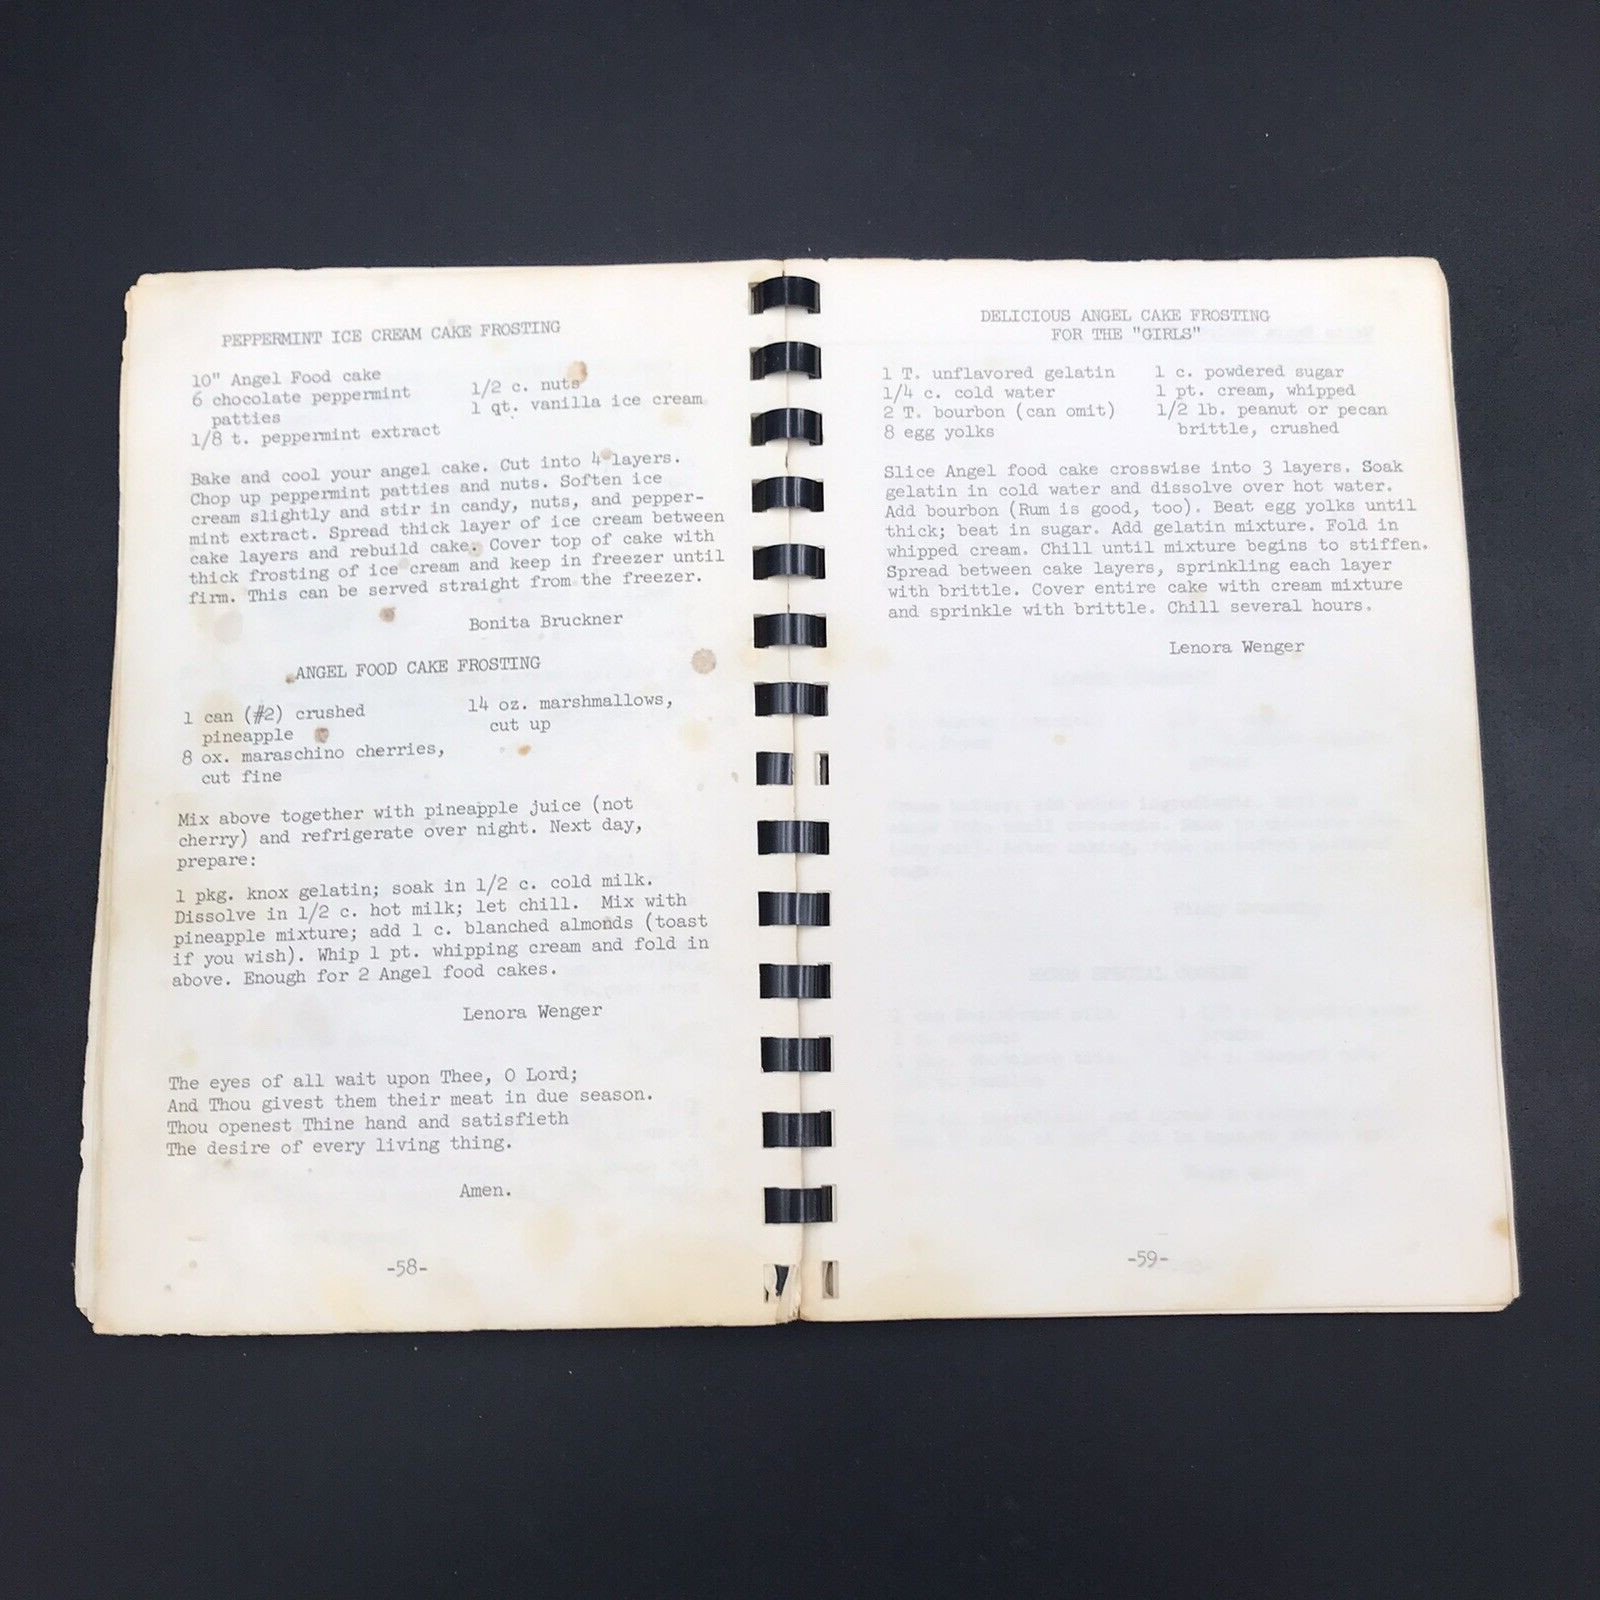 PEPPERMINT ICE CREAM CAKE FROSTING
10" Angel Food cake
6 chocolate peppermint
patties
1/8 t. peppermint extract
1/2 c. nuts
1 qt. vanilla ice cream
Bake and cool your angel cake. Cut into 4 layers.
Chop up peppermint patties and nuts. Soften ice
cream slightly and stir in candy, nuts, and pepper-
mint extract. Spread thick layer of ice cream between
cake layers and rebuild cake. Cover top of cake with
thick frosting of ice cream and keep in freezer until
firm. This can be served straight from the freezer.
Bonita Bruckner
ANGEL FOOD CAKE FROSTING
1 can (#2) crushed
pineapple
8 ox. maraschino cherries,
cut fine
14 oz. marshmallows,
cut up
Mix above together with pineapple juice (not
cherry) and refrigerate over night. Next day,
prepare:
1 pkg. knox gelatin; soak in 1/2 c. cold milk.
Dissolve in 1/2 c. hot milk; let chill. Mix with
pineapple mixture; add 1 c. blanched almonds (toast
if you wish). Whip 1 pt. whipping cream and fold in
above. Enough for 2 Angel food cakes.
Lenora Wenger
The eyes of all wait upon Thee, O Lord;
And Thou givest them their meat in due season.
Thou openest Thine hand and satisfieth
The desire of every living thing.
Amen.
-58-
DELICIOUS ANGEL CAKE FROSTING
FOR THE "GIRLS"
1 T. unflavored gelatin
1/4 c. cold water
2 T. bourbon (can omit)
8 egg yolks
1 c. powdered sugar
1 pt. cream, whipped
1/2 lb. peanut or pecan
brittle, crushed
Slice Angel food cake crosswise into 3 layers. Soak
gelatin in cold water and dissolve over hot water.
Add bourbon (Rum is good, too). Beat egg yolks until
thick; beat in sugar. Add gelatin mixture. Fold in
whipped cream. Chill until mixture begins to stiffen.
Spread between cake layers, sprinkling each layer
with brittle. Cover entire cake with cream mixture
and sprinkle with brittle. Chill several hours.
Lenora Wenger
-59-